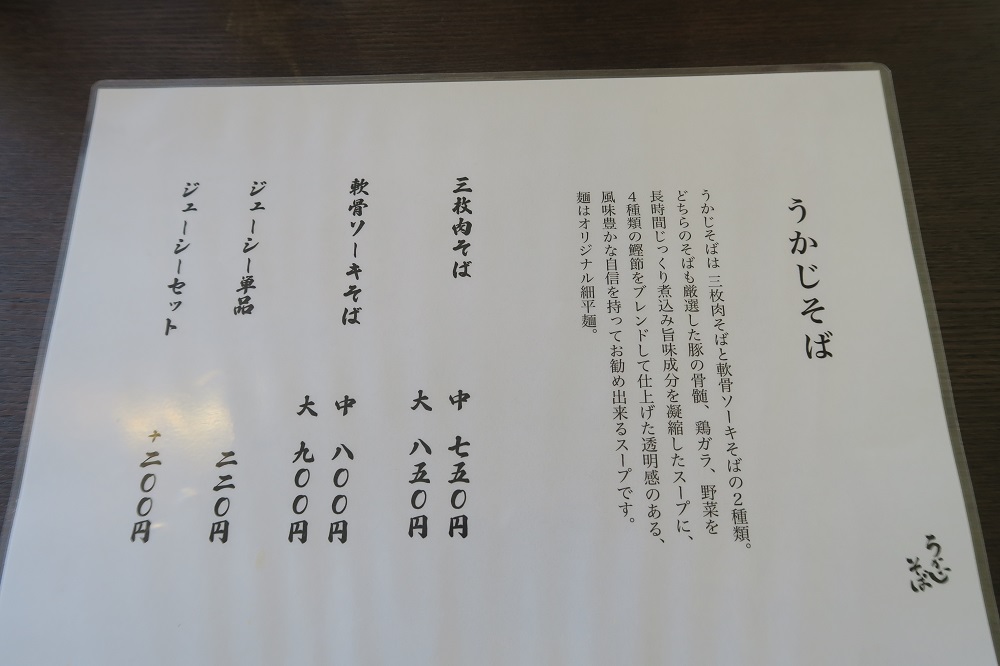 うかじそば
うかじそばは三枚肉そばと軟骨ソーキそばの2種類。
どちらのそばも厳選した豚の骨髄、鶏ガラ、野菜を
長時間じっくり煮込み旨味成分を凝縮したスープに、
4種類の鰹節をブレンドして仕上げた透明感のある、
風味豊かな自信を持ってお勧め出来るスープです。
麺はオリジナル細平麺。
三枚肉そば 中 七五〇円
大 八五〇円
軟骨ソーキそば 中 八〇〇円
大 九〇〇円
ジューシー単品 二二〇円
ジューシーセット +二〇〇円
うかじ
そば